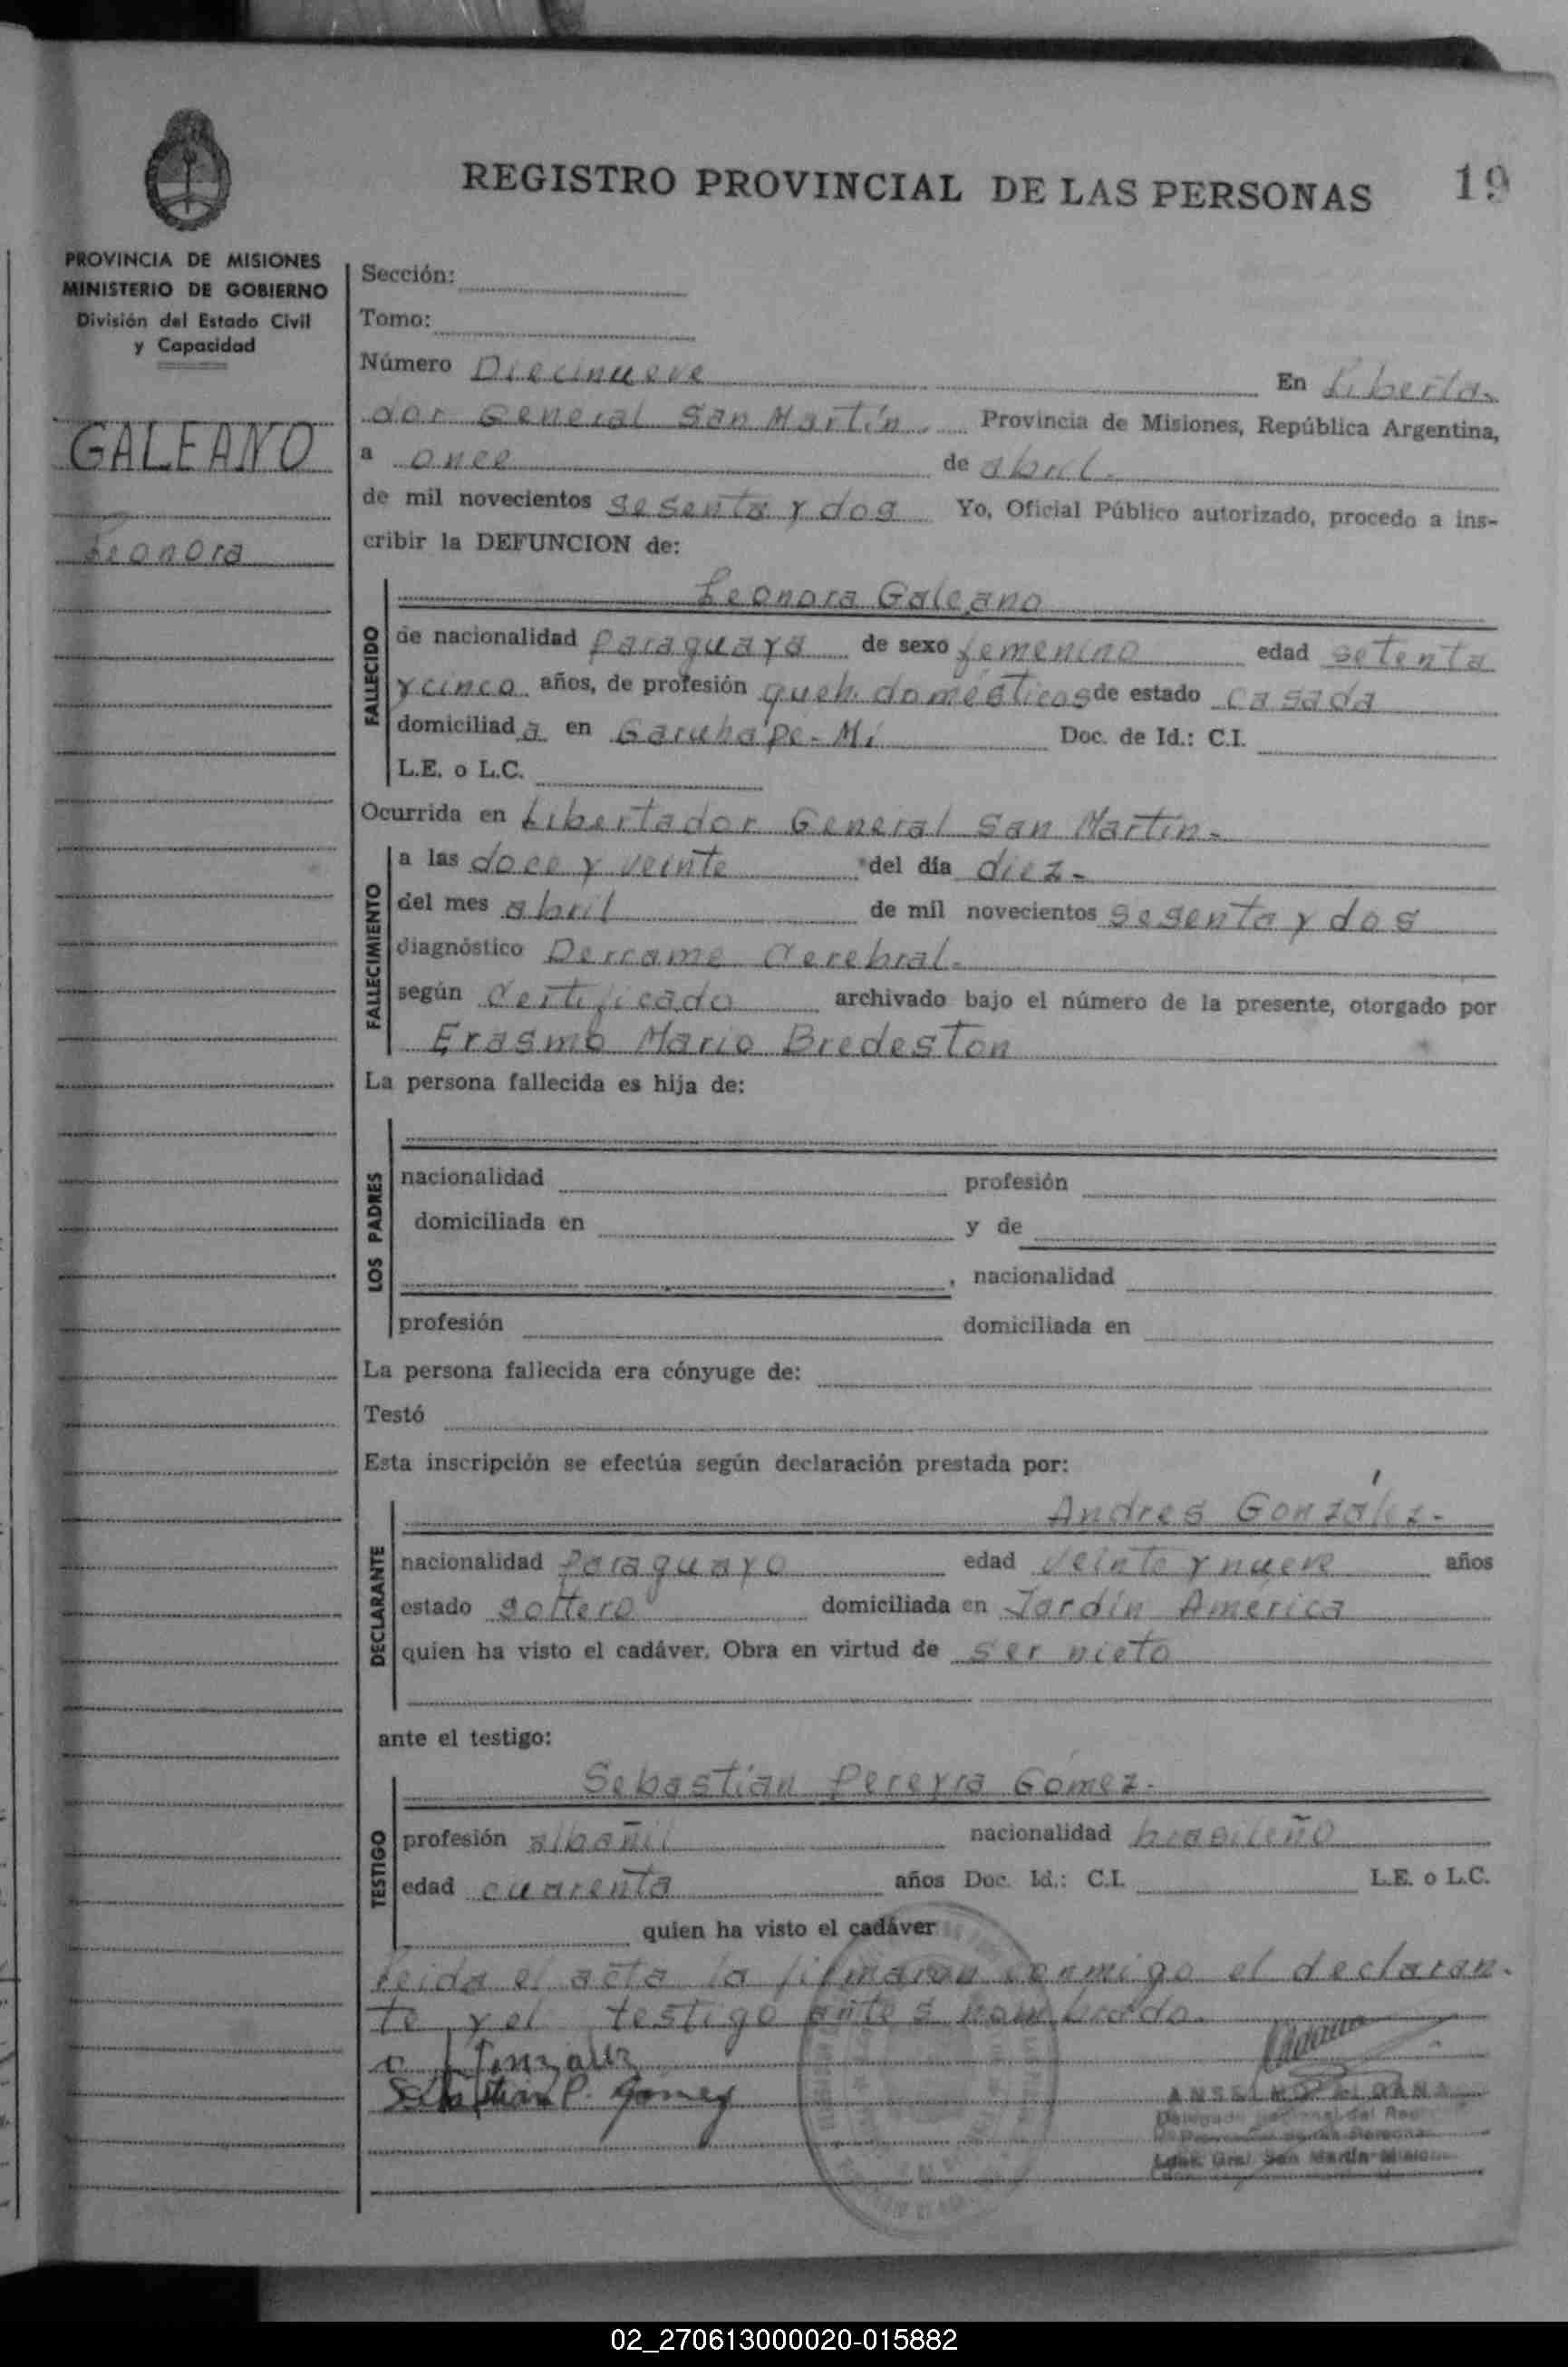 REGISTRO PROVINCIAL DE LAS PERSONAS 19
PROVINCIA DE MISIONES
MINISTERIO DE GOBIERNO
División del Estado Civil
y Capacidad
GALEANO
Leonora
Sección:
Tomo:
Número Diecinueve En Liberta-
dor General San Martín, Provincia de Misiones, República Argentina,
a once de abril-
de mil novecientos sesenta y dos Yo, Oficial Público autorizado, procedo a ins-
cribir la DEFUNCION de:
FALLECIDO
Leonora Galeano
de nacionalidad paraguaya de sexo femenino edad setenta
y cinco años, de profesión queh. domésticos de estado casada
domiciliada en Garuhapé-Mí Doc. de Id.: C.I.
L.E. o L.C.
Ocurrida en Libertador General San Martín-
FALLECIMIENTO
a las doce y veinte del día diez-
del mes abril de mil novecientos sesenta y dos
diagnóstico Derrame Cerebral-
según Certificado archivado bajo el número de la presente, otorgado por
Erasmo Mario Bredeston
La persona fallecida es hija de:
LOS PADRES
nacionalidad profesión
domiciliada en y de
, nacionalidad
profesión domiciliada en
La persona fallecida era cónyuge de:
Testó
Esta inscripción se efectúa según declaración prestada por:
DECLARANTE
Andres González-
nacionalidad paraguayo edad veinte y nueve años
estado soltero domiciliada en Jardín America
quien ha visto el cadáver. Obra en virtud de ser nieto
ante el testigo:
TESTIGO
Sebastian Pereyra Gómez-
profesión albañil nacionalidad brasileño
edad cuarenta años Doc. Id.: C.I. L.E. o L.C.
quien ha visto el cadáver
Leida el acta la firmaran conmigo el declaran-
te y el testigo antes nombrado.
Gonzalez
Sebastian P. Gomez
ANSELMO
Lib. Gral San Martín
02_270613000020-015882